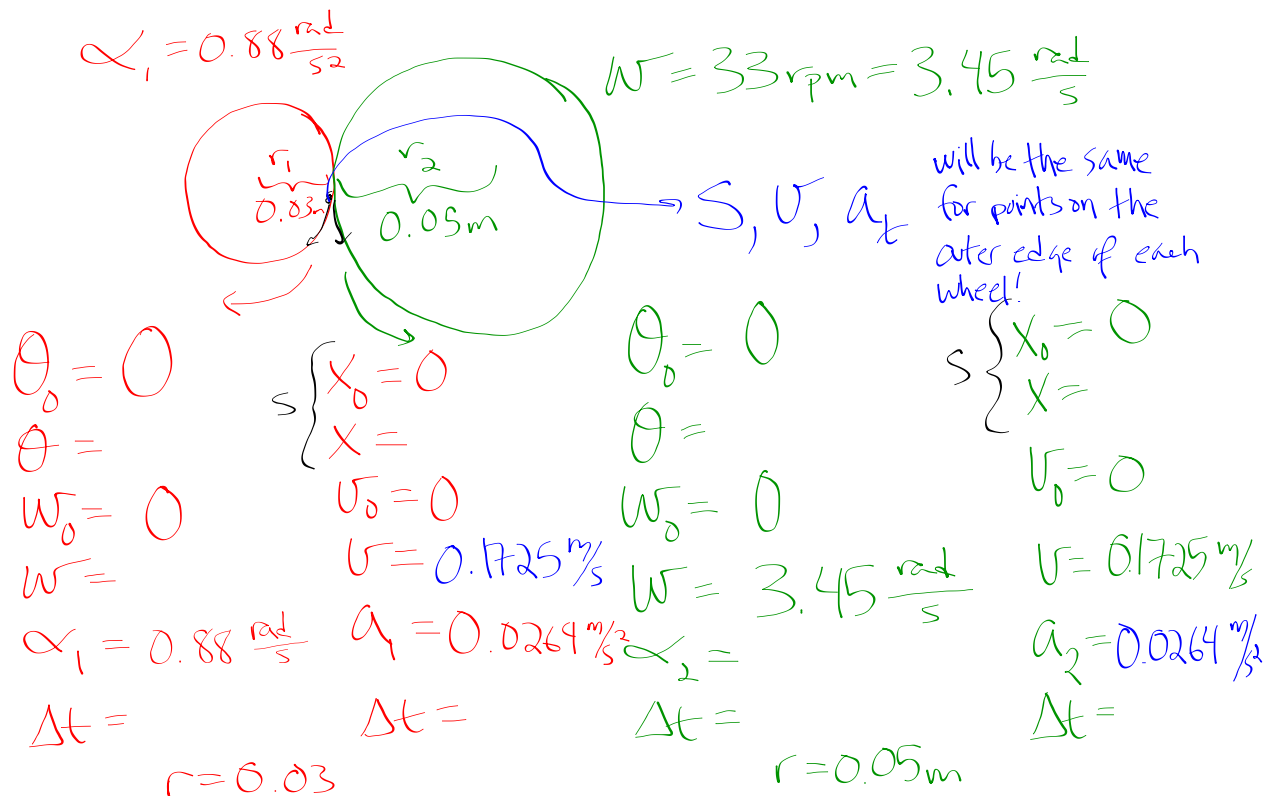 α₁ = 0.88 rad/s²
ω = 33 rpm = 3.45 rad/s
r₁
0.03m
r₂
0.05m
S, v, aₜ
will be the same
for points on the
outer edge of each
wheel!
θ₀ = 0
θ =
ω₀ = 0
ω =
α₁ = 0.88 rad/s
Δt =
r = 0.03
S { x₀ = 0
x =
v₀ = 0
v = 0.1725 m/s
a₁ = 0.0264 m/s²
Δt =
θ₀ = 0
θ =
ω₀ = 0
ω = 3.45 rad/s
α₂ =
Δt =
r = 0.05m
S { x₀ = 0
x =
v₀ = 0
v = 0.1725 m/s
a₂ = 0.0264 m/s²
Δt =